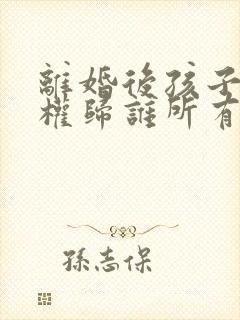 離婚後孩子
權歸誰所有
孫志保